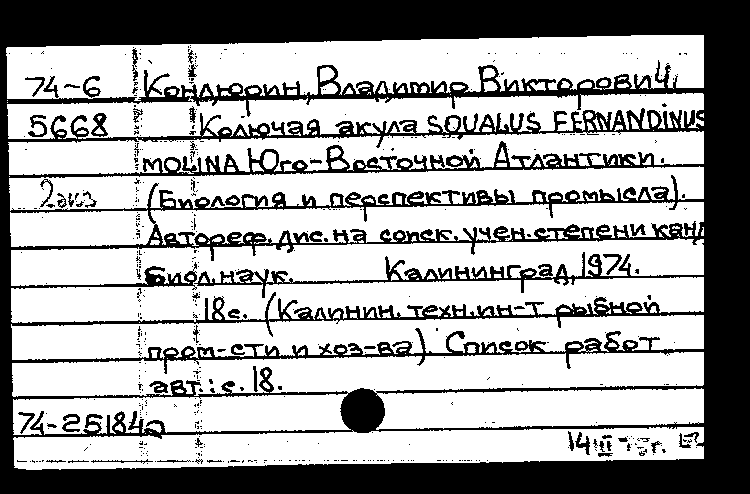 74-6 Кондюрин, Владимир Викторович.
5668 Колючая акула SQUALUS FERNANDINUS
MOLINA Юго-Восточной Атлантики.
2 экз (Биология и перспективы промысла).
Автореф. дис. на соиск. учен. степени канд
биол. наук. Калининград, 1974.
18 с. (Калинин. техн. ин-т рыбной
пром-сти и хоз-ва). Список работ
авт.: с. 18.
74-25184а
14 III г.